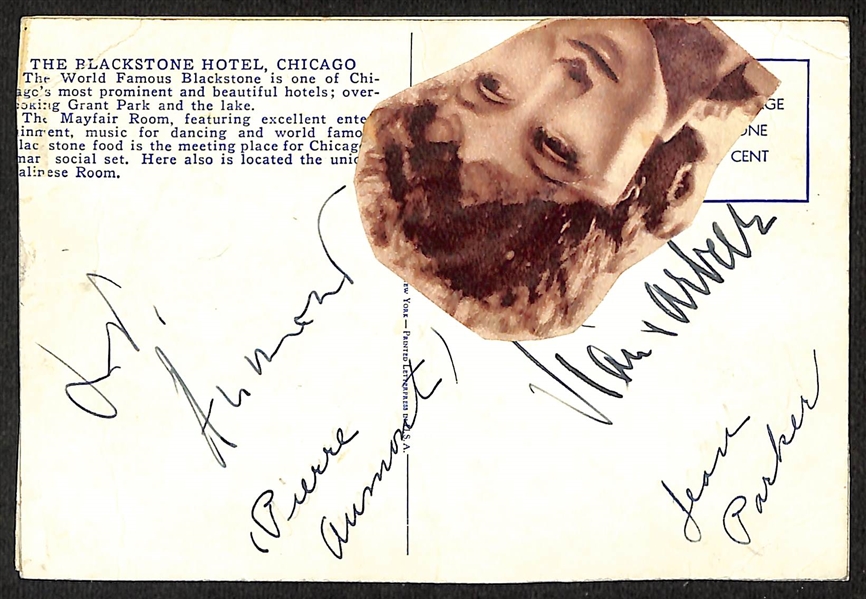 THE BLACKSTONE HOTEL, CHICAGO
The World Famous Blackstone is one of Chi-
ago's most prominent and beautiful hotels; over-
oking Grant Park and the lake.
The Mayfair Room, featuring excellent ente
inment, music for dancing and world famo
lac stone food is the meeting place for Chicag
mar social set. Here also is located the uniq
alinese Room.
GE
ONE
CENT
EW YORK — PRINTED LETTERPRESS IN U.S.A.
Aumont
(Pierre
Aumont)
Jean
Parker